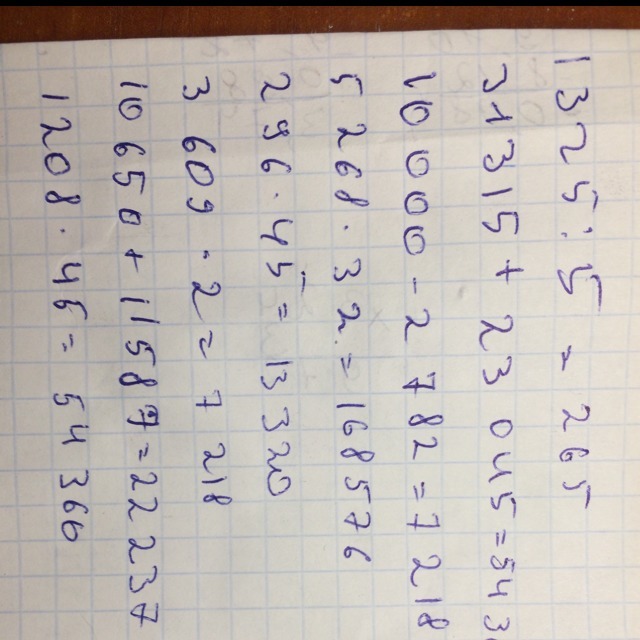 1325 : 5 = 265
31315 + 23 045 = 543
10 000 - 2 782 = 7 218
5 268 · 32 = 168576
296 · 45 = 13 320
3 609 · 2 = 7 218
10 650 + 11587 = 22 237
1208 · 45 = 54 360